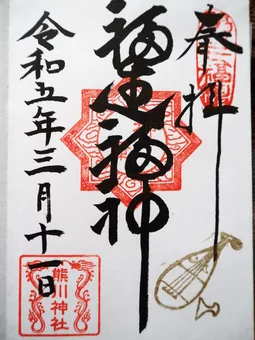 奉拝
福生福神
令和五年三月十一日
熊川
神社